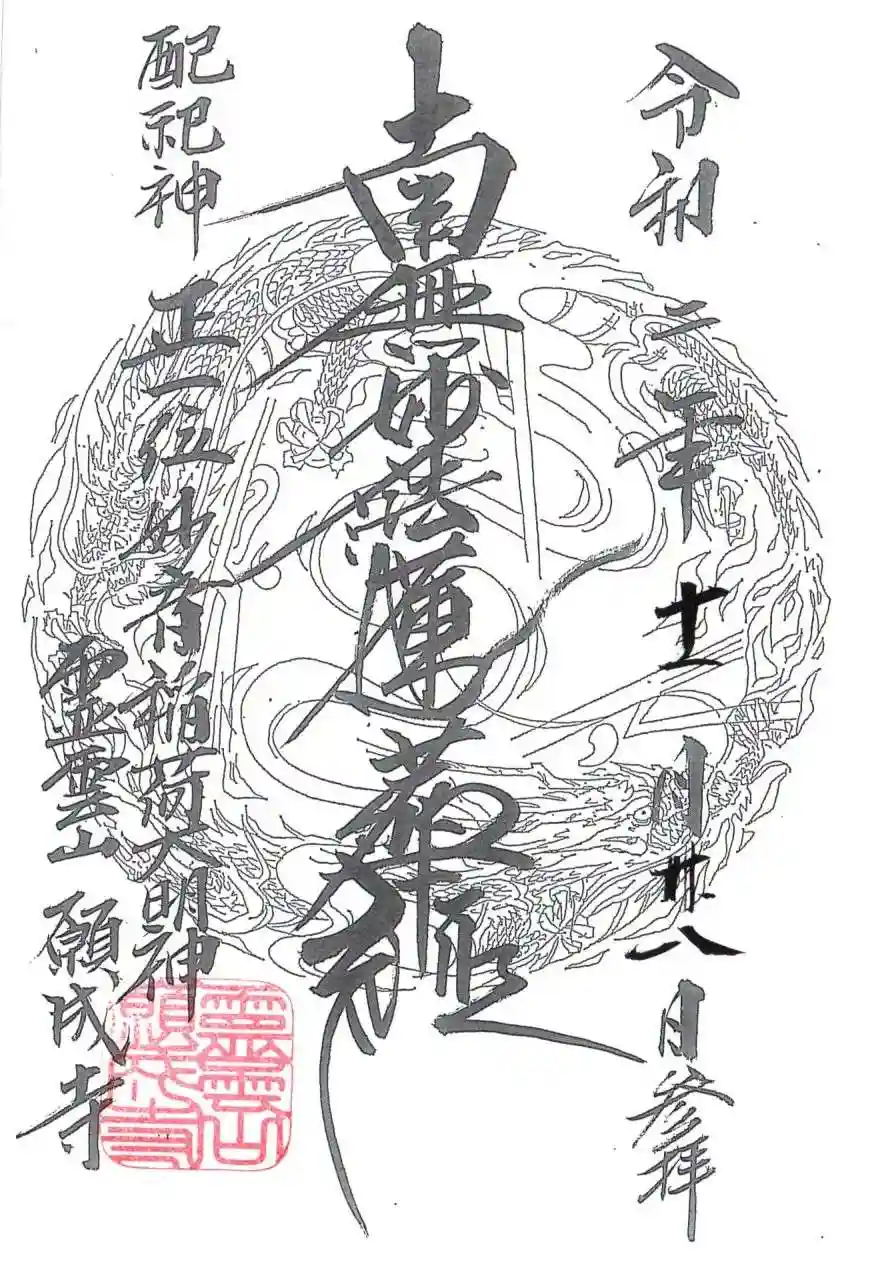 令和二年十一月廿八日参拝
南無妙法蓮華経
配祀神
正一位妙音稲荷大明神
霊雲山 願成寺
霊雲山
願成寺